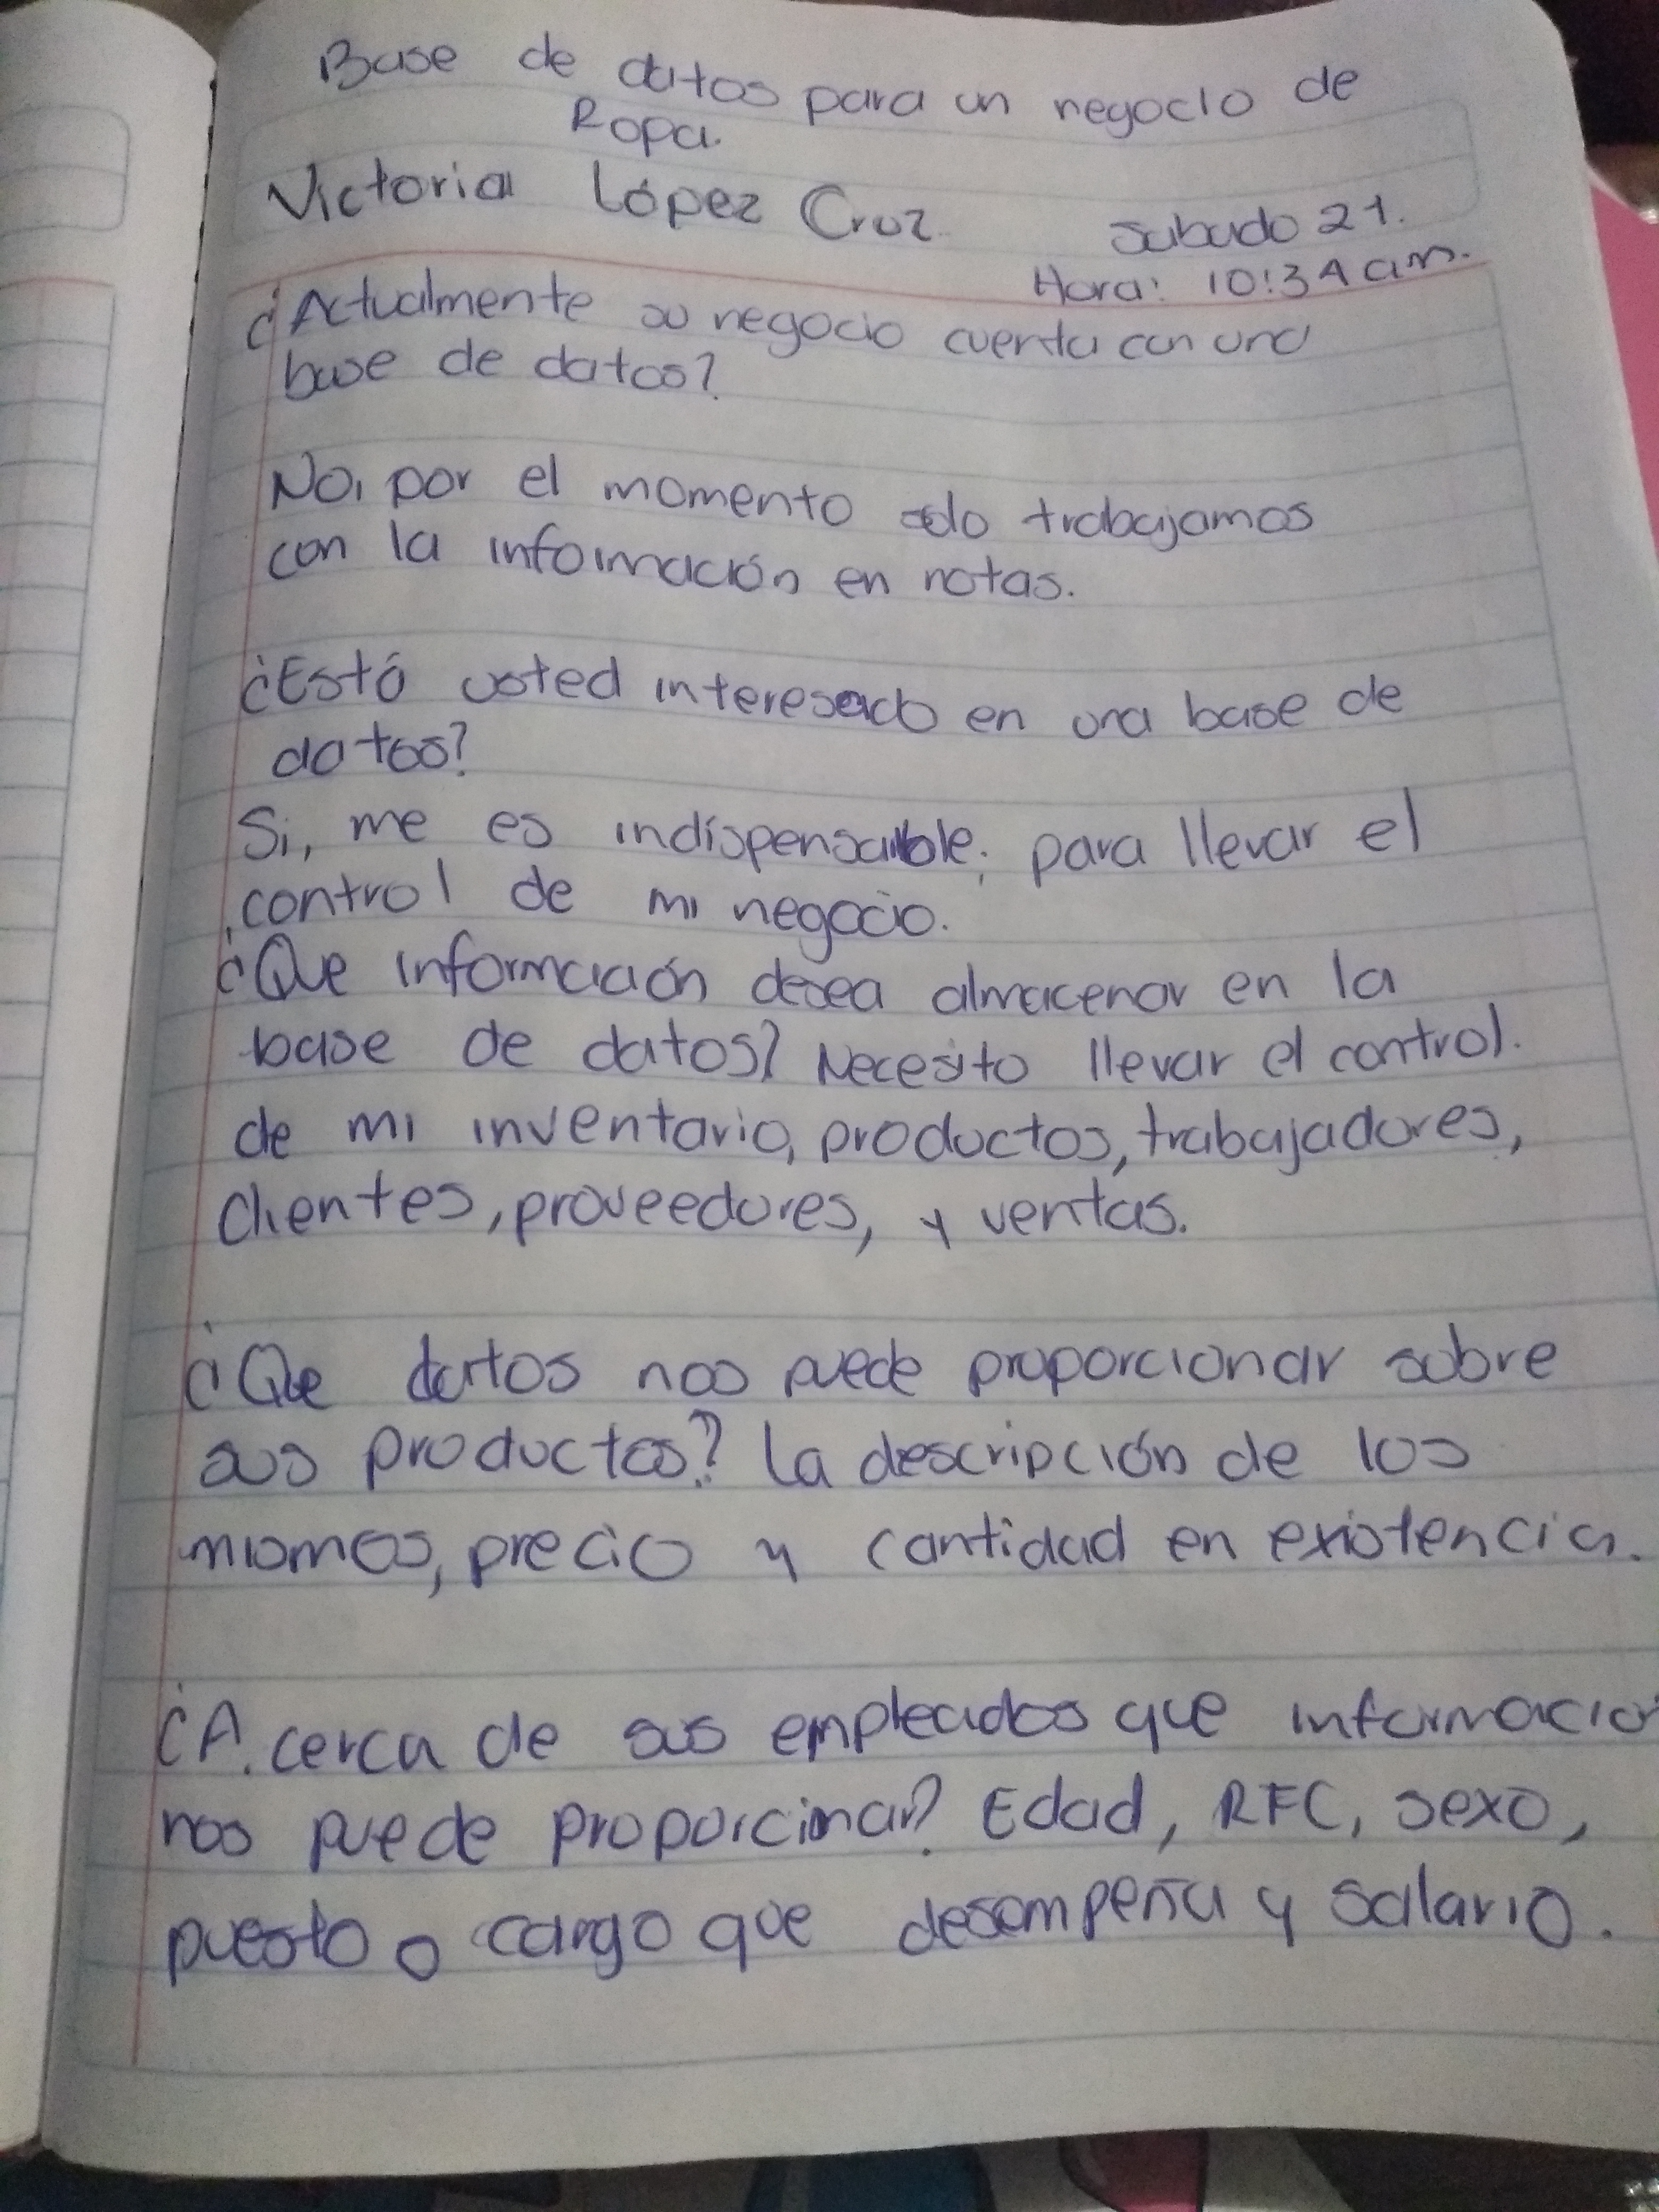 Base de datos para un negocio de
Ropa.
Victoria López Cruz
Sabado 21.
Hora: 10:34 am.
¿Actualmente su negocio cuenta con una
base de datos?
No, por el momento solo trabajamos
con la información en notas.
¿Está usted interesado en una base de
datos?
Si, me es indispensable; para llevar el
control de mi negocio.
¿Que información desea almacenar en la
base de datos? Necesito llevar el control.
de mi inventario, productos, trabajadores,
clientes, proveedores, y ventas.
¿Que datos nos puede proporcionar sobre
sus productos? La descripción de los
mismos, precio y cantidad en existencia.
¿A cerca de sus empleados que informacion
nos puede proporcionar? Edad, RFC, sexo,
puesto o cargo que desempeña y salario.